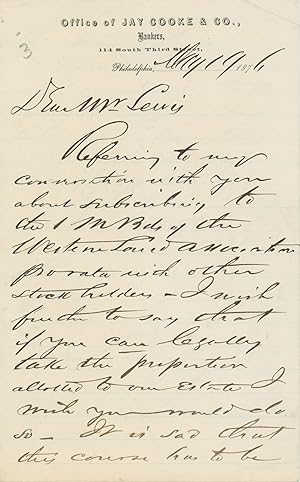 Office of JAY COOKE & CO.,
Bankers,
114 South Third Street,
Philadelphia, May 19 1876
3
Dear Mr Lewis
Referring to my
conversation with you
about subscribing to
the 1 M Bds of the
Western Land Association
pro rata with other
stockholders – I wish
further to say that
if you can legally
take the proportion
allotted to our Estate I
wish you would do
so – It is sad that
this course has to be